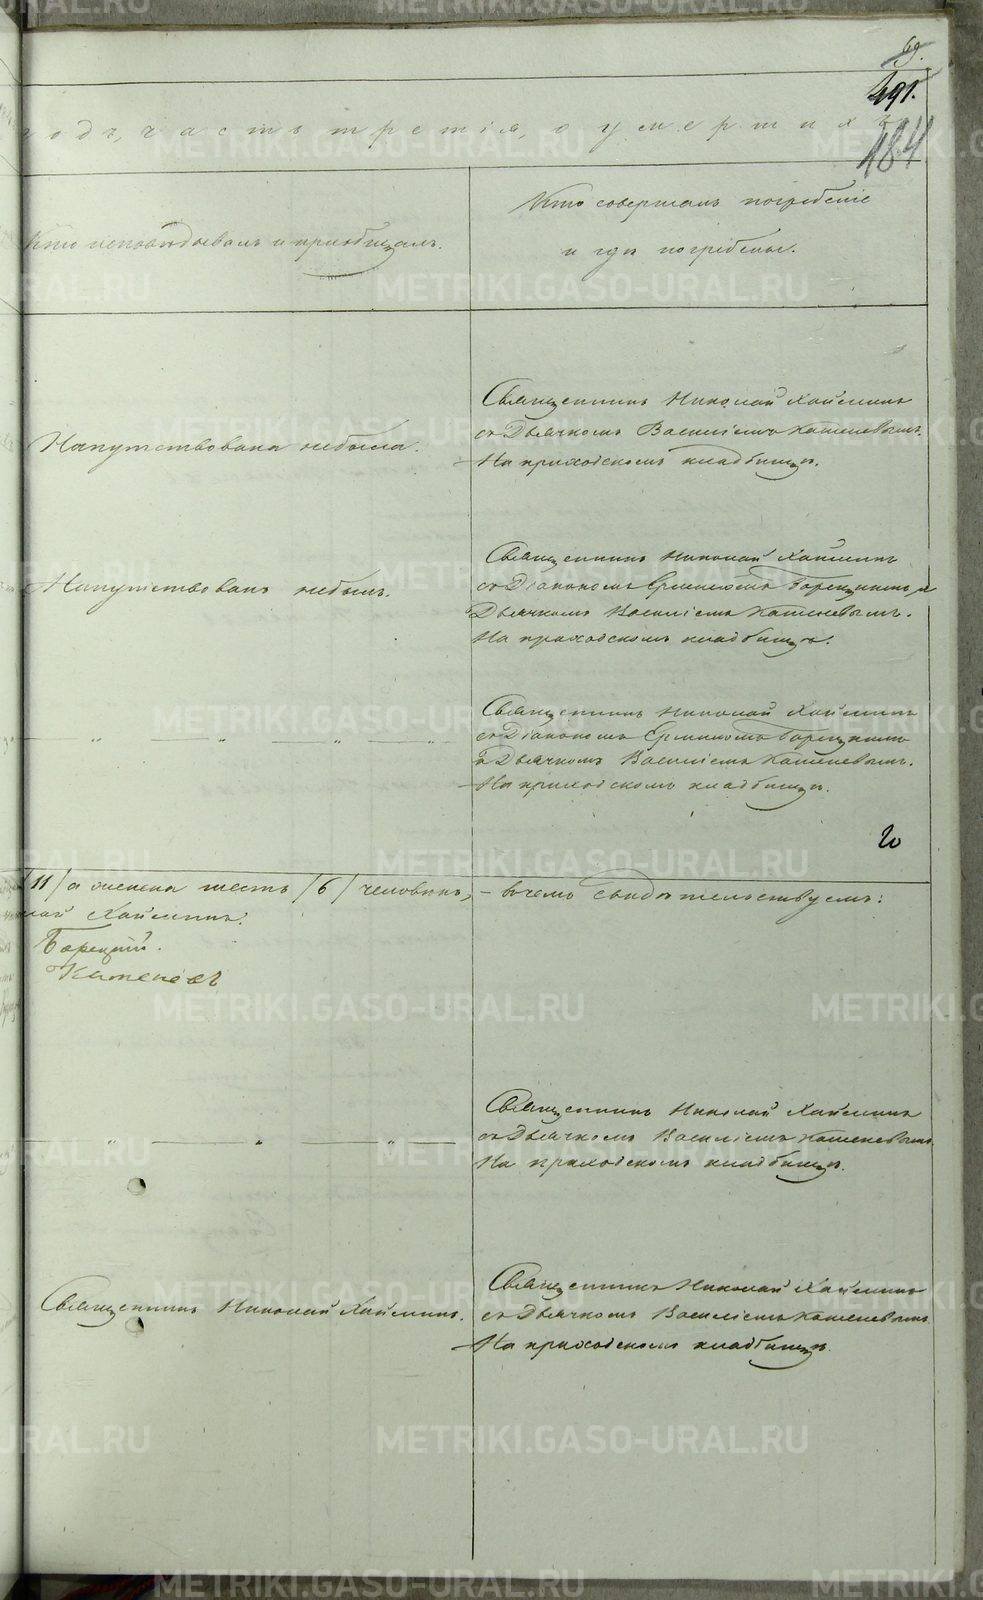 69.
491.
184
годъ, часть третія, о умершихъ
Кто исповѣдывалъ и пріобщалъ.
Кто совершалъ погребеніе
и гдѣ погребены.
Напутствована небыла.
Священникъ Николай Хайминъ
съ Дьячкомъ Василіемъ Каменевымъ.
На приходскомъ кладбищѣ.
Напутствованъ небылъ.
Священникъ Николай Хайминъ
съ Діакономъ Ермиломъ Борецкимъ и
Дьячкомъ Василіемъ Каменевымъ.
На приходскомъ кладбищѣ.
— „ — „ — „ — „ —
Священникъ Николай Хайминъ
съ Діакономъ Ермиломъ Борецкимъ
и Дьячкомъ Василіемъ Каменевымъ.
На приходскомъ кладбищѣ.
20
/11/ а женска шесть /6/ человѣкъ, – въ чемъ свидѣтельствуемъ:
лай Хайминъ.
Борецкій.
Каменевъ
— „ — „ — „ —
Священникъ Николай Хайминъ
съ Дьячкомъ Василіемъ Каменевымъ.
На приходскомъ кладбищѣ.
Священникъ Николай Хайминъ.
Священникъ Николай Хайминъ
съ Дьячкомъ Василіемъ Каменевымъ
На приходскомъ кладбищѣ.
METRIKI.GASO-URAL.RU